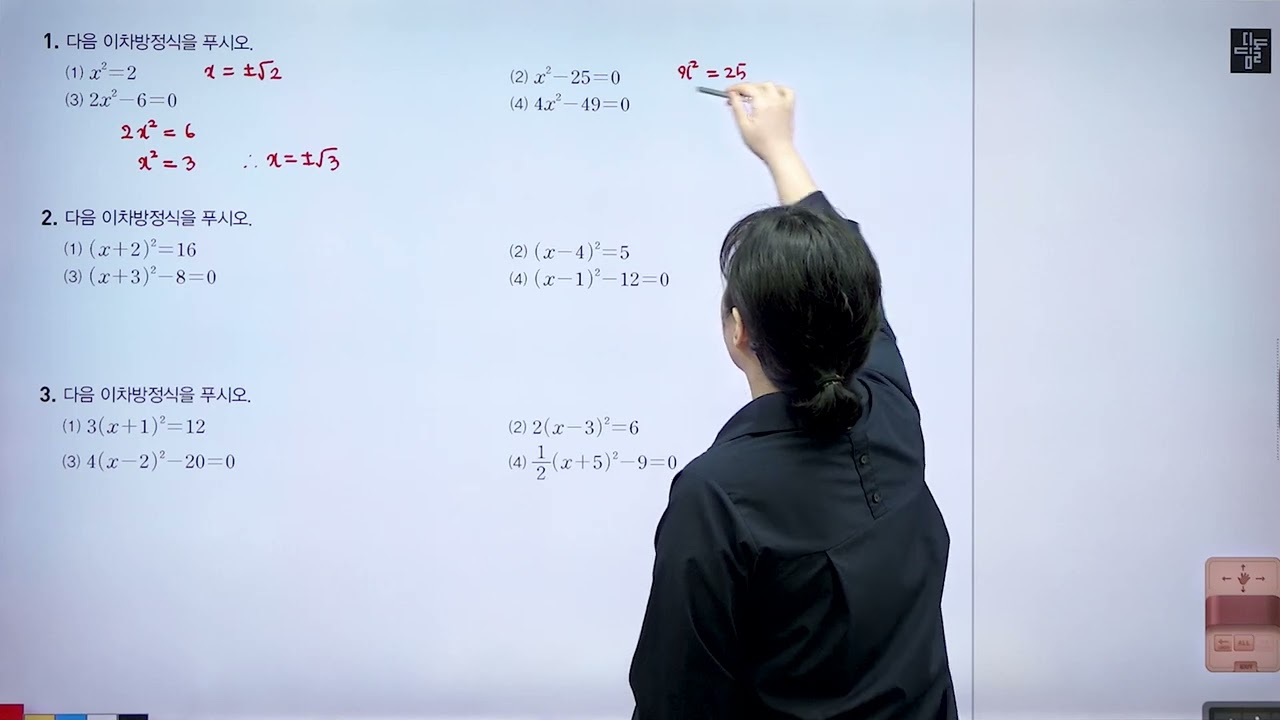 1. 다음 이차방정식을 푸시오.
(1) x²=2 x = ±√2
(2) x²−25=0 x² = 25
(3) 2x²−6=0
(4) 4x²−49=0
2x² = 6
x² = 3 ∴ x = ±√3
2. 다음 이차방정식을 푸시오.
(1) (x+2)²=16
(2) (x−4)²=5
(3) (x+3)²−8=0
(4) (x−1)²−12=0
3. 다음 이차방정식을 푸시오.
(1) 3(x+1)²=12
(2) 2(x−3)²=6
(3) 4(x−2)²−20=0
(4) 1/2(x+5)²−9=0
디딤돌
ALL
EXIT